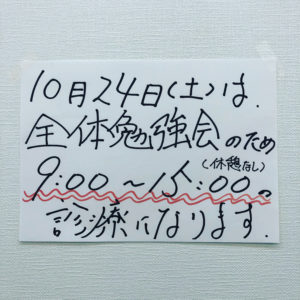 10月24日(土)は.
全体勉強会のため
(休憩なし)
9:00～15:00の
診療になります.